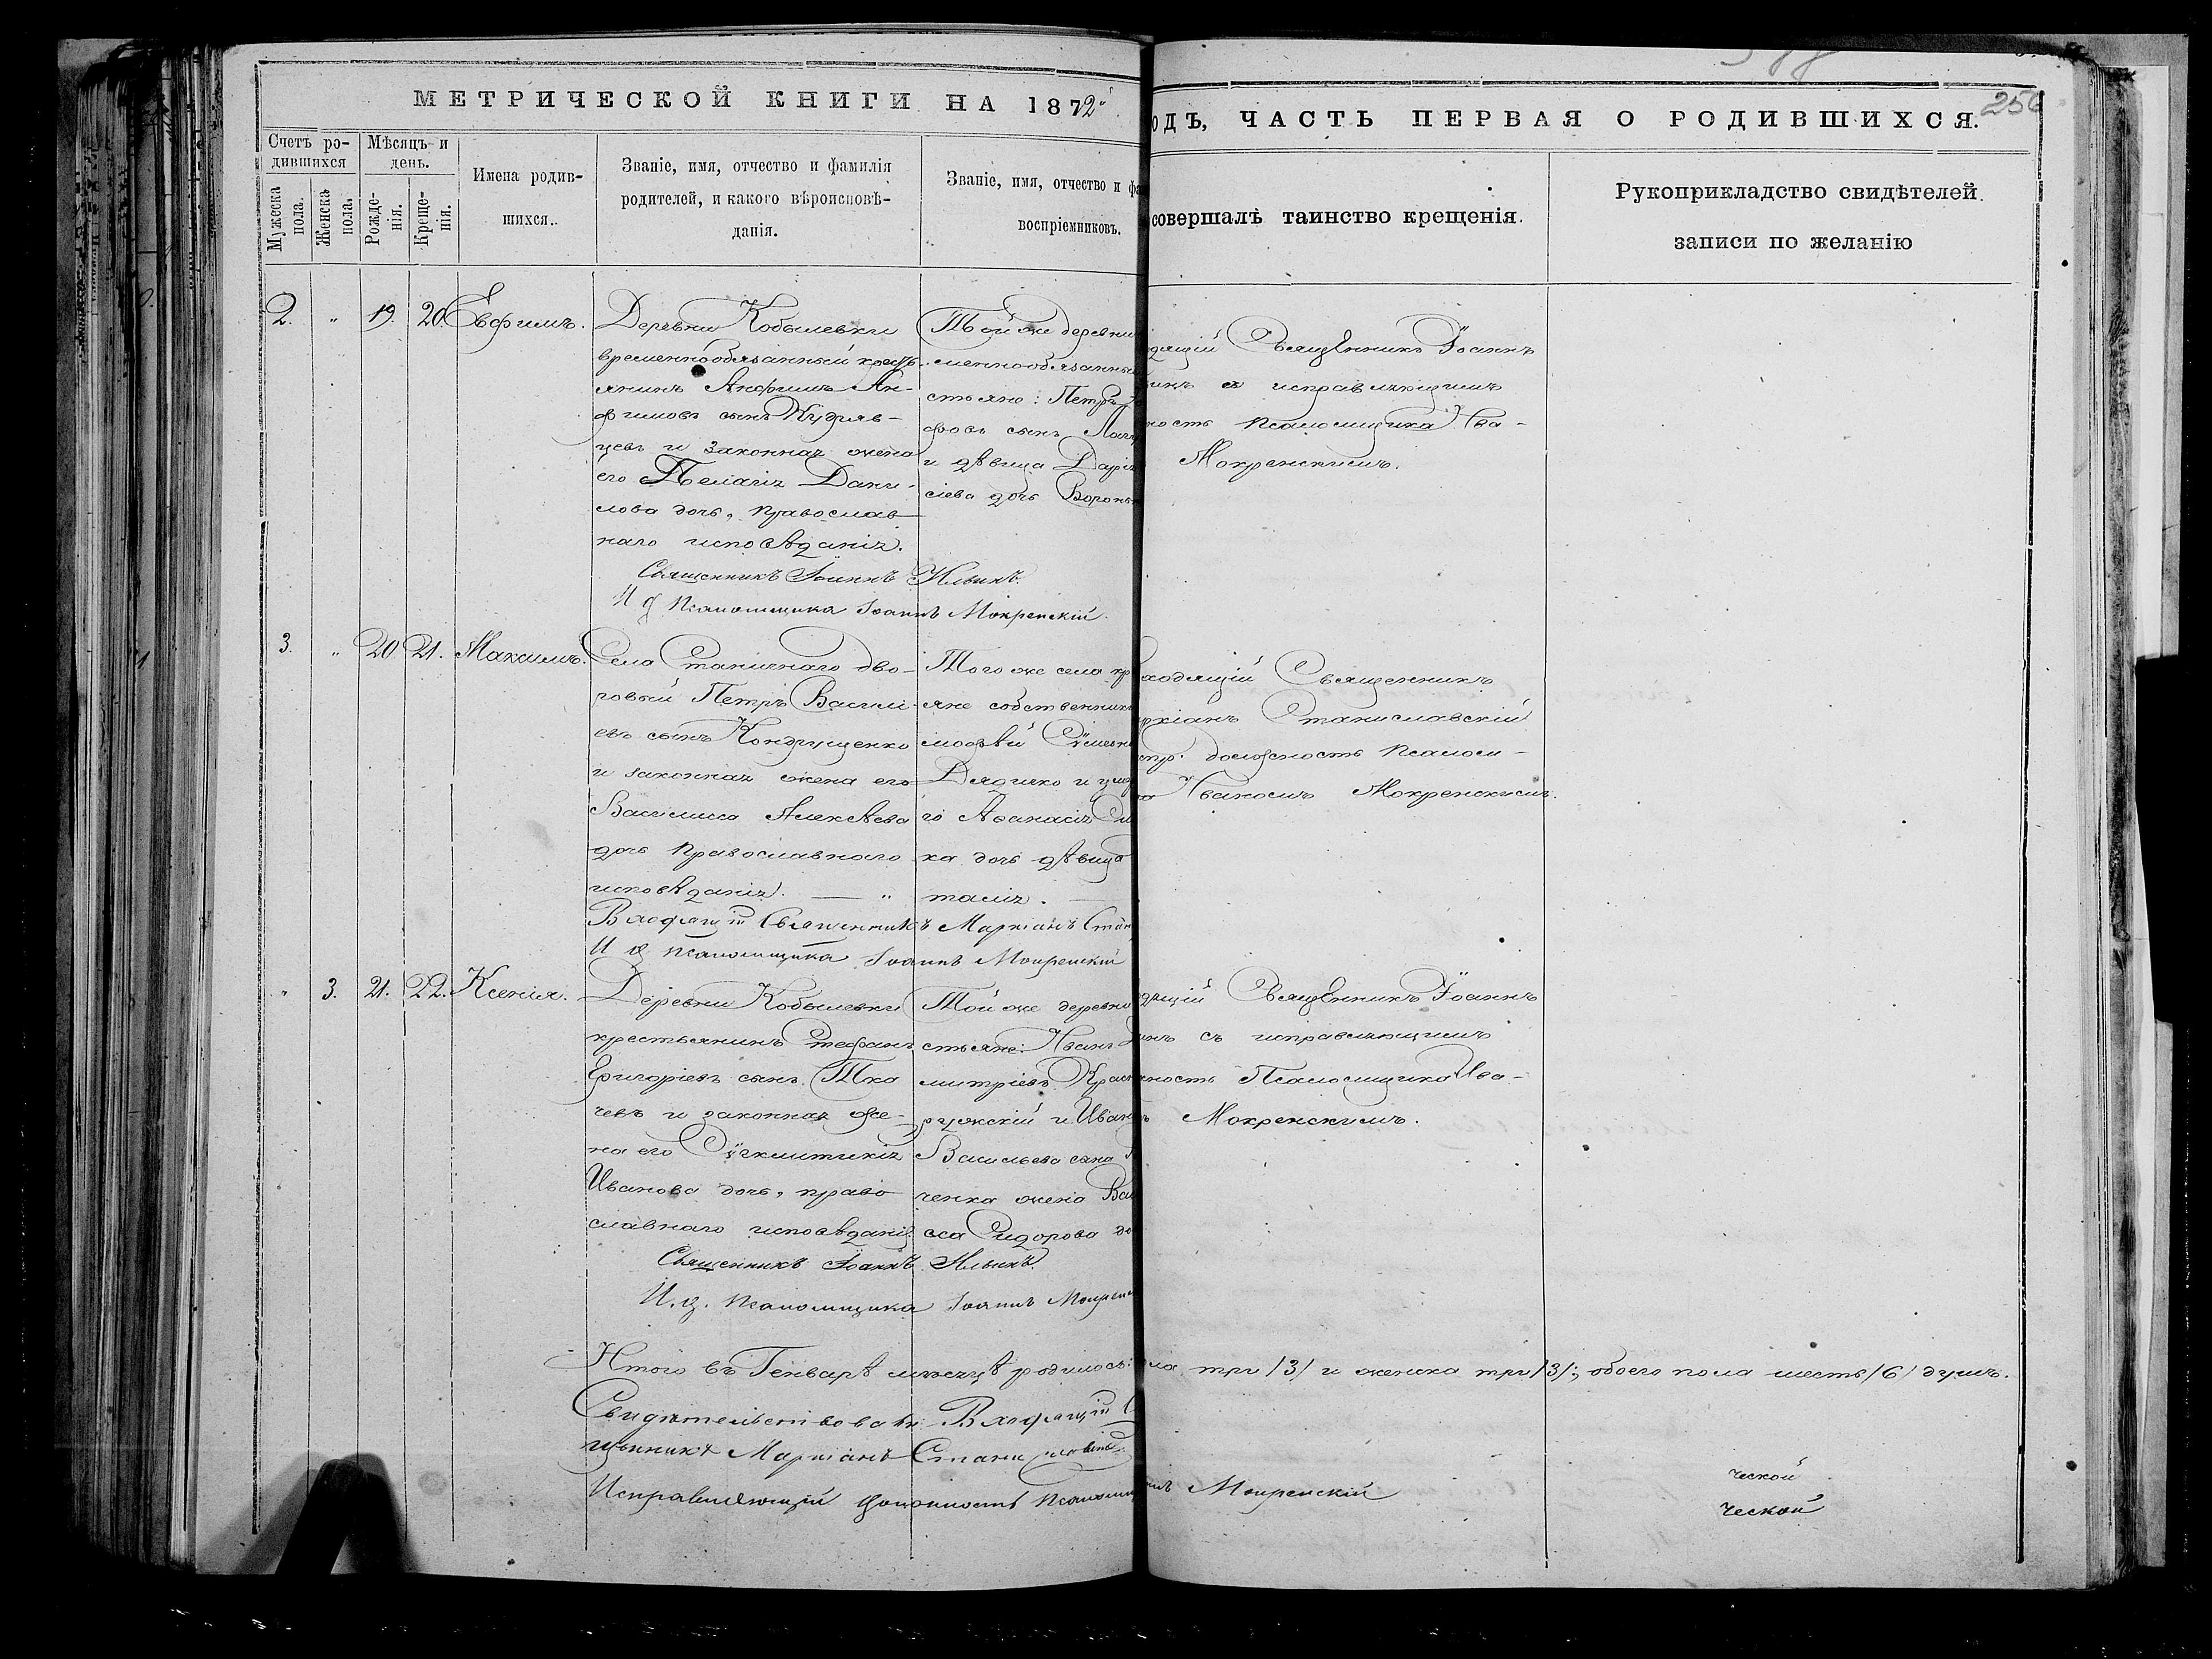 МЕТРИЧЕСКОЙ КНИГИ НА 1872
ОДЪ, ЧАСТЬ ПЕРВАЯ О РОДИВШИХСЯ.
Счетъ ро-
дившихся
Мужеска пола.
Женска пола.
Мѣсяцъ и
день.
Рожде-
нія.
Креще-
нія.
Имена родив-
шихся.
Званіе, имя, отчество и фамилія
родителей, и какого вѣроисповѣ-
данія.
Званіе, имя, отчество и фа
воспріемниковъ.
совершалъ таинство крещенія.
Рукоприкладство свидѣтелей
записи по желанію
2. " 19. 20. Евфимъ.
Деревни Кобылевки
временнообязанный кресть-
янинъ Анфимъ Ан-
фимовъ сынъ Кудряв-
цевъ и законная жена
его Пелагія Дани-
лова дочь, православ
наго исповѣданія.
Той же деревни
меннообязанны
стьяне: Петръ
фовъ сынъ
и дѣвица Дарія
сіева дочь Воронь
дящій Священникъ Іоаннъ
исправляющимъ
ность Псаломщика Ива-
Мокренскимъ.
Священникъ Іоаннъ Ильинъ.
И д Псаломщика Іоаннъ Мокренскій.
3. " 20 21. Максимъ.
Села Станичнаго дво-
ровый Петръ Василі-
евъ сынъ Кондрущенко
и законная жена его
Василисса Алексѣева
дочь Православнаго
исповѣданія. — "
Того же села кр
яне собственник
мофѣй Сѵмеон
Дядичко и
го Аѳанасія
ка дочь дѣвица
талія. —
ходящій Священникъ
ркіанъ Станиславскій
спр. должность Псалом-
Иваномъ Мокренскимъ.
Входящій Священникъ Маркіанъ Стан
И д Псаломщика Іоаннъ Мокренскій
" 3. 21. 22. Ксенія.
Деревни Кобылевки
крестьянинъ Стефанъ
Григоріевъ сынъ Тка
чевъ и законная же-
на его Сѵнклитикія
Иванова дочь, право
славнаго исповѣданія.
Той же деревни
стьяне: Иванъ
митріевъ Крас
ружскій и Иван
Васильева сына
ченка жена Ва
сса Сидорова до
дящій Священникъ Іоаннъ
инъ съ исправляющимъ
ность Псаломщика Ива-
Мокренскимъ.
Священникъ Іоаннъ Ильинъ.
И. д. Псаломщика Іоаннъ Мокренс
Итого въ Генварѣ мѣсяцѣ родилось: ла три /3/ и женска три /3/; обоего пола шесть /6/ душъ.
Свидѣтельствовали: Входящій
щенникъ Маркіанъ Станиславскій
Исправляющій должность Псаломщ
Мокренскій
ческой
ческой